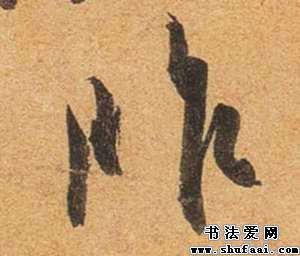 昨
书法爱网
www.shufaai.com